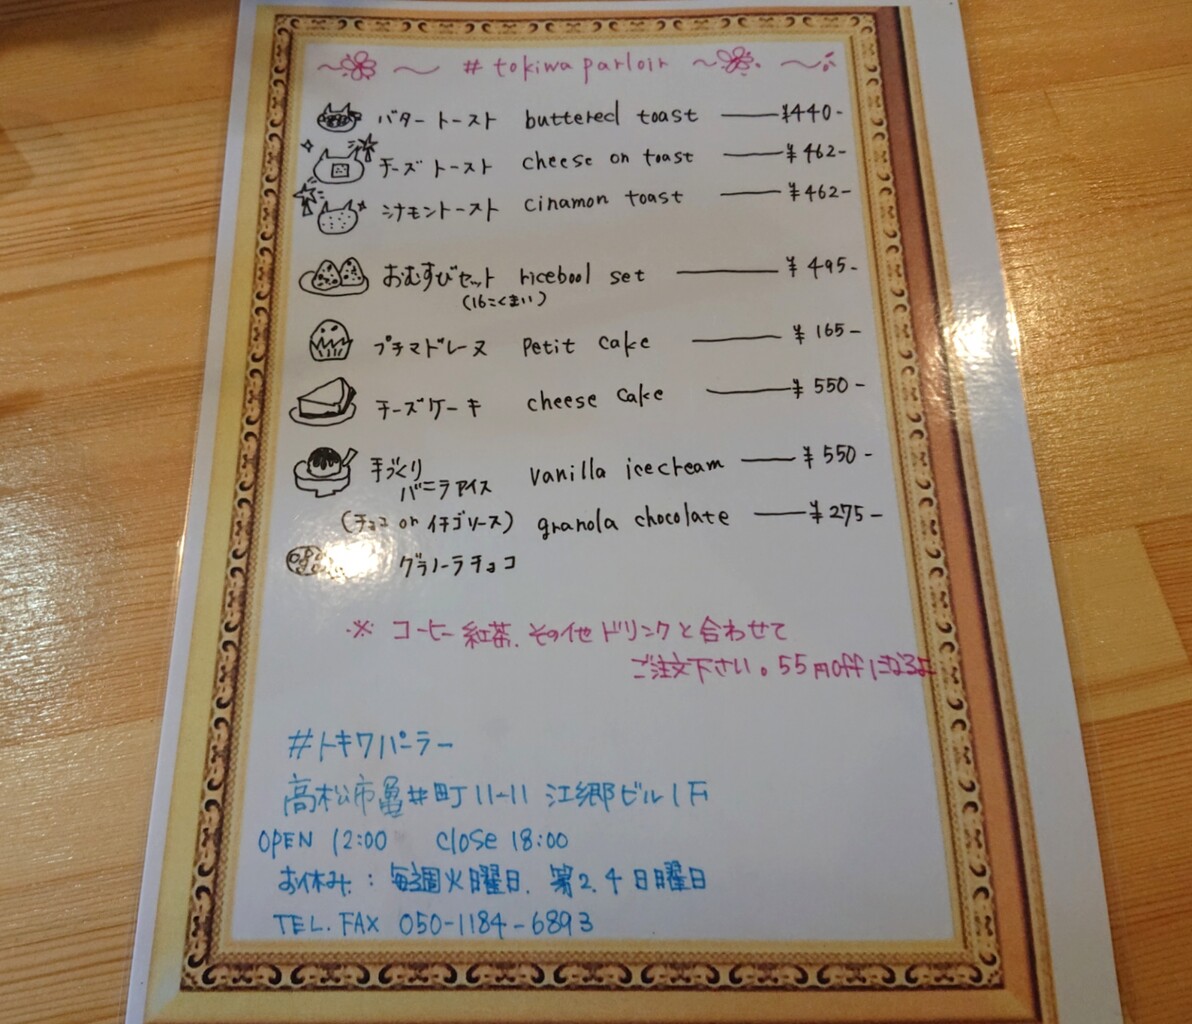 # tokiwa parloir
バタートースト buttered toast ¥440-
チーズトースト cheese on toast ¥462-
シナモントースト cinamon toast ¥462-
おむすびセット ricebool set ¥495-
(16こくまい)
プチマドレーヌ petit cake ¥165-
チーズケーキ cheese cake ¥550-
手づくり vanilla icecream ¥550-
バニラアイス
(チョコ or イチゴソース) granola chocolate ¥275-
グラノーラチョコ
※ コーヒー 紅茶.その他ドリンクと合わせて
ご注文下さい。55円offになるよ
#トキワパーラー
高松市亀井町11-11 江郷ビル1F
OPEN 12:00 close 18:00
お休み:毎週火曜日.第2.4日曜日
TEL.FAX 050-1184-6893